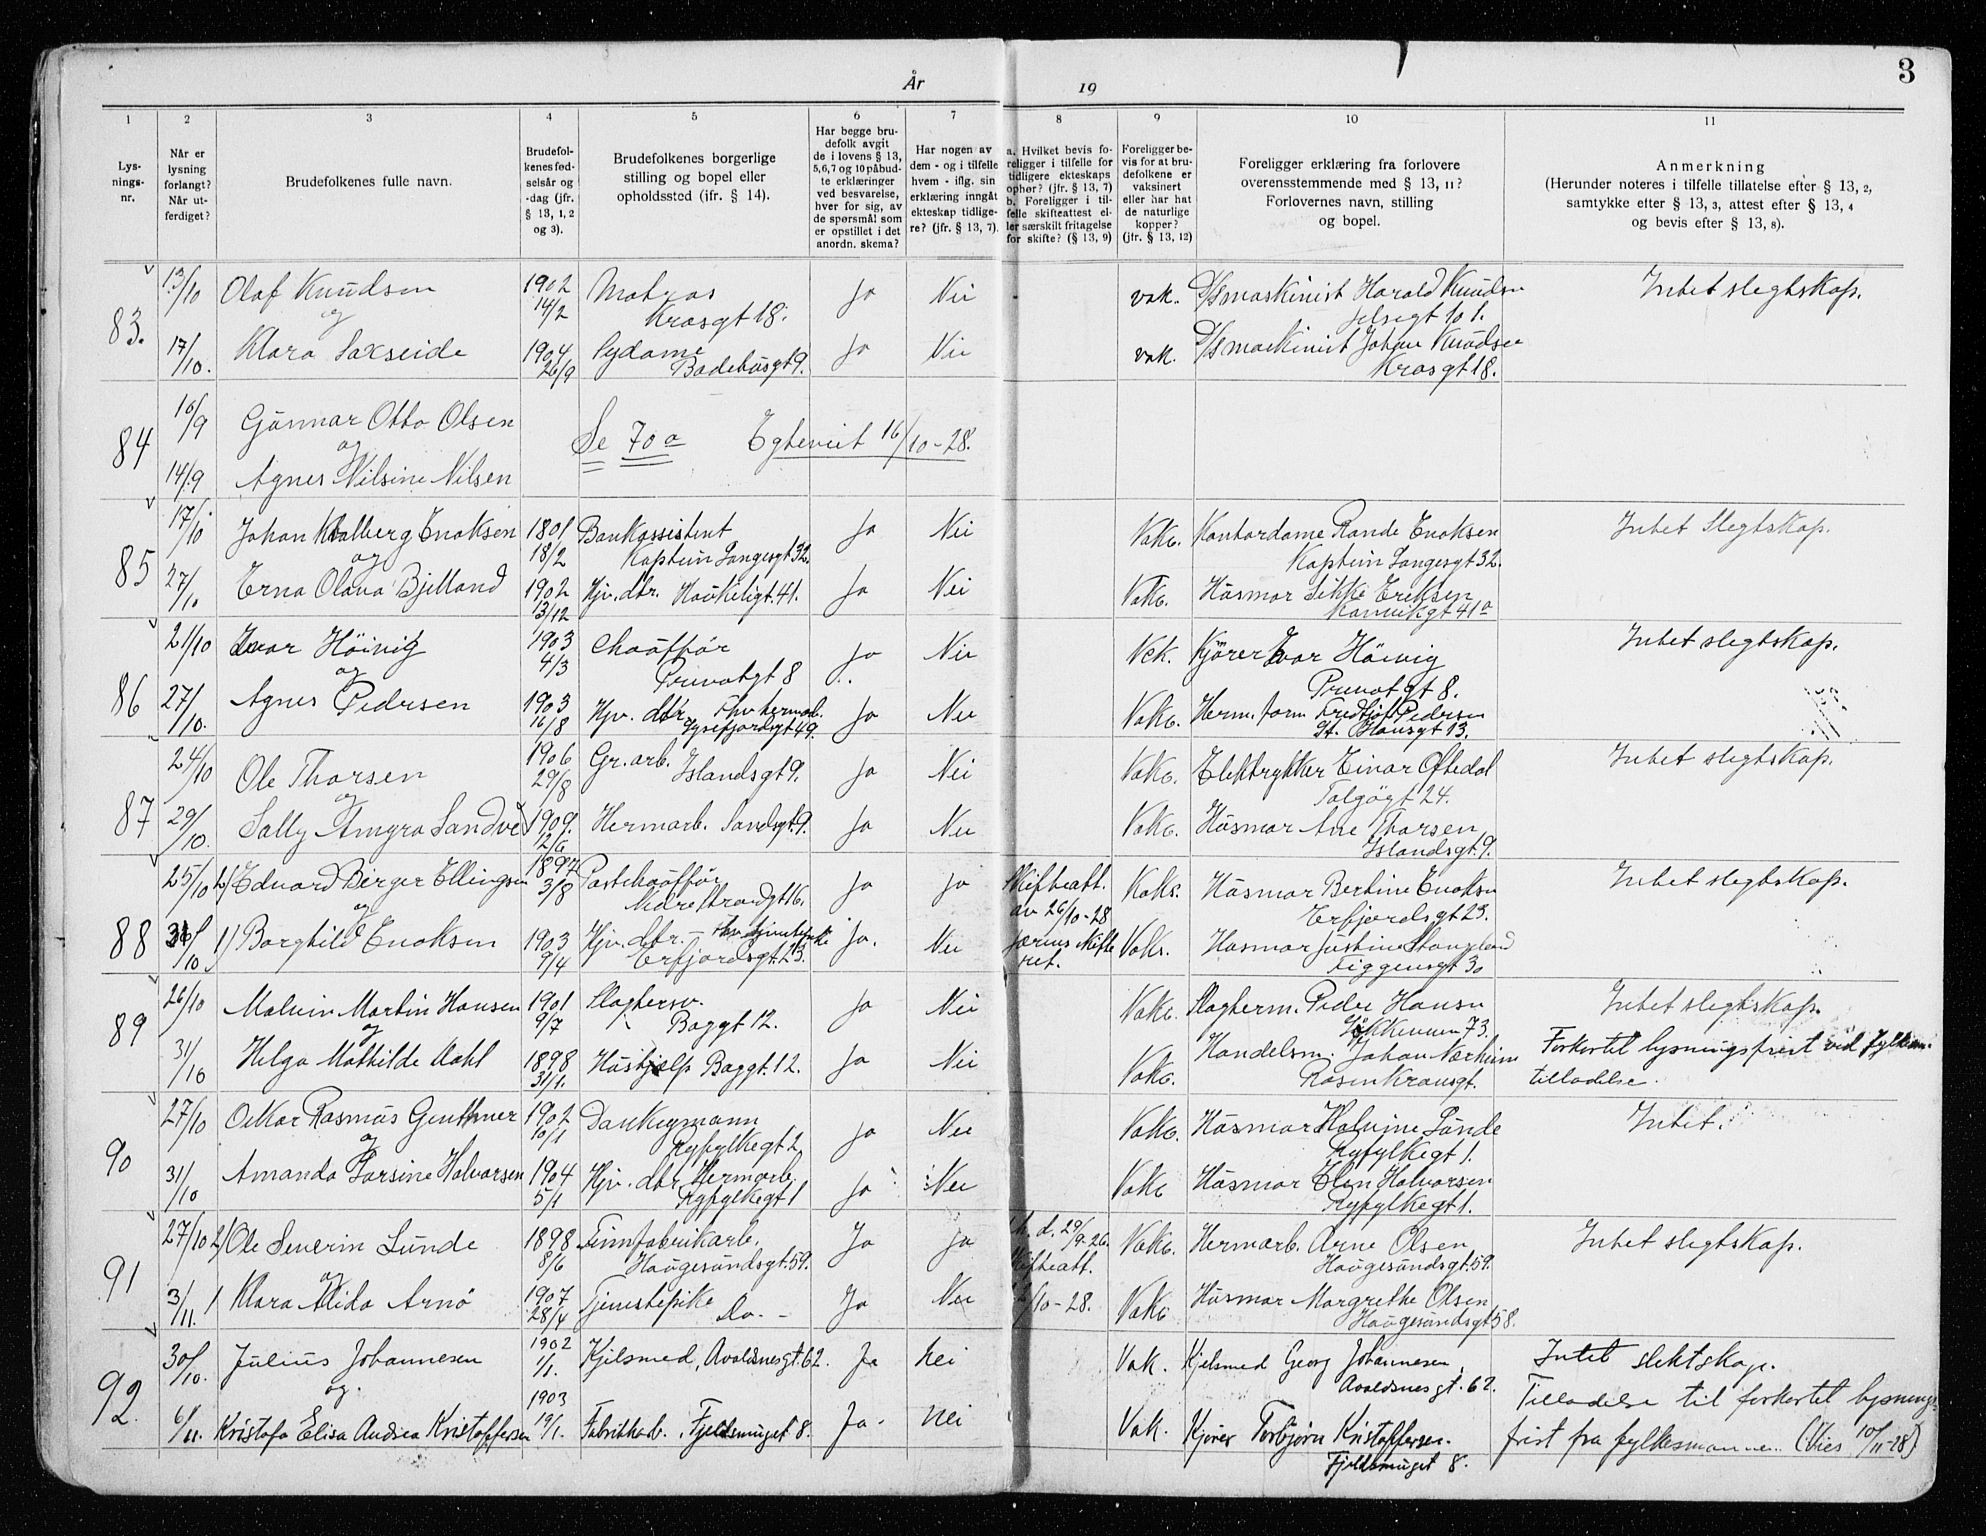 År 19
3
1 2 3 4 5 6 7 8 9 10 11
Lys-
nings-
nr.
Når er
lysning
forlangt?
Når ut-
ferdiget?
Brudefolkenes fulle navn.
Brudefol-
kenes fød-
selsår og
-dag (jfr.
§ 13, 1, 2
og 3).
Brudefolkenes borgerlige
stilling og bopel eller
opholdssted (ifr. § 14).
Har begge bru-
defolk avgit
de i lovens § 13,
5,6,7 og 10 påbud-
te erklæringer
ved besvarelse,
hver for sig, av
de spørsmål som
er opstillet i det
anordn. skema?
Har nogen av
dem - og i tilfelle
hvem - iflg. sin
erklæring inngåt
ekteskap tidlige-
re? (jfr. § 13, 7).
a. Hvilket bevis fo-
religger i tilfelle for
tidligere ekteskaps
ophør? (jfr. § 13, 7)
b. Foreligger i til-
felle skifteattest el-
ler særskilt fritagelse
for skifte? (§ 13, 9)
Foreligger be-
vis for at bru-
defolkene er
vaksinert
eller har hat
de naturlige
kopper?
(jfr. § 13, 12)
Foreligger erklæring fra forlovere
overensstemmende med § 13, 11?
Forlovernes navn, stilling
og bopel.
Anmerkning
(Herunder noteres i tilfelle tillatelse efter § 13, 2,
samtykke efter § 13, 3, attest efter § 13, 4
og bevis efter § 13, 8).
83. 13/10 Olaf Knudsen 1902 14/2 Matros Ja Nei vak. D/S maskinist Harald Knudsen Intet slegtskap.
og Krosgt 18. Jelsegt 101.
17/10. Klara Saxseide 1904 26/9 Sydame Ja Nei vak. D/S maskinist Johan Knudsen
Badehusgt 9. Krosgt 18.
84 16/9 Gunnar Otto Olsen
og Se 70 a Egteviet 16/10-28.
14/9 Agnes Nilsine Nilsen
85 17/10 Johan Kalberg Enoksen 1801 18/2 Bankassistent Ja Nei Vakc. Kontordame Rande Enoksen Intet Slegtskap.
og Kaptein Langesgt 32. Kaptein Langesgt 32.
27/10 Erna Olava Bjelland 1902 13/12 Hjv. dtr. Haukeligt. 41. Ja Nei Vakc. Husmor Sikke Eriksen
Kannikgt 41a
86 21/10 Ivar Höivig 1903 4/3 Chaufför Ja Nei Vak. Kjörer Ivar Höivig Intet slegtskap.
og Privatgt 8 Privatgt 8.
27/10. Agnes Pedersen 1903 16/8 Hjv. dtr. Ja Nei Vakc. Herm. form. Fredtjof Pedersen
Lysefjordgt 49. St. Hansgt 13.
87 24/10 Ole Thorsen 1906 29/8 Gr. arb. Islandsgt 9. Ja Nei Vakc. Elektrykker Einar Oftedal Intet slegtskap.
og Talgögt 24.
29/10. Sally Amgra Sandve 1909. 2/6 Hermarb. Sandsgt. 9. Ja Nei Vakc. Husmor Ane Thorsen
Islandsgt. 9.
88 25/10 2) Edvard Birger Ellingsen 1897 3/8 Postchaufför Ja Ja Skifteatt. Vakc. Husmor Bertine Enoksen Intet slegtskap.
og av 26/10-28 Erfjordsgt 23.
31/10 1) Borghild Enoksen 1903 9/4 Hjv. dtr. Ja. Nei Jærens skifte Vakc. Husmor Justine Stangeland
Erfjordsgt. 23. ret. Figgensgt 30
89 26/10 Malvin Martin Hansen 1901 9/7 Slaktersv. Ja Nei Vakc. Slagterm. Peder Hansen Intet slegtskap.
og Baggt 12. 73.
31/10 Helga Mathilde Dahl 1898 31/1. Hushjælp Baggt. 12. Ja Nei Vakc. Handelsm. Johan Nærheim Forkortet lysningsfrist ved fylkem.
Rosenkransgt. tilladelse.
90 27/10 Oskar Rasmus Genthner 1902 10/1 Dankeymann Ja Nei Vakc. Husmor Malvine Sunde Intet.
og Ryfylkegt 2 Ryfylkegt 1.
31/10 Amanda Larsine Halvorsen 1904 5/1 Hjv. dtr. Hermarb. Ja Nei Vakc Husmor Elen Halvorsen
Ryfylkegt 1 Ryfylkegt 1.
91 27/10 2) Ole Severin Sunde 1898 8/6 Tinnfabrikarb. Ja Ja d. 29/9-26. Vakc. Hermarb. Arne Olsen Intet slegtskap.
og Haugesundsgt. 59. Skifteatt. Haugesundsgt. 59.
3/11. 1 Klara Alida Arnö 1907 28/4 Tjenestepike Do. - Ja Nei /10-28. Vakc Husmor Margrethe Olsen
Haugesundsgt 58.
92 30/10. Julius Johannesen 1902 1/1. Kjelsmed, Avaldsnesgt. 62. Ja Nei Vak. Kjelsmed Georg Johannesen, Intet slektskap.
og. Avaldsnesgt. 62. Tilladelse til forkortet lysnings-
6/11. Kristofa Elisa Andrea Kristoffersen 1903 19/1. Fabrikkarb. Fjeldsmuget 8. Ja. Nei Vak. Kjörer Torbjörn Kristoffersen. frist fra fylkesmannen. (Vies 10/11-28)
Fjeldsmuget 8.